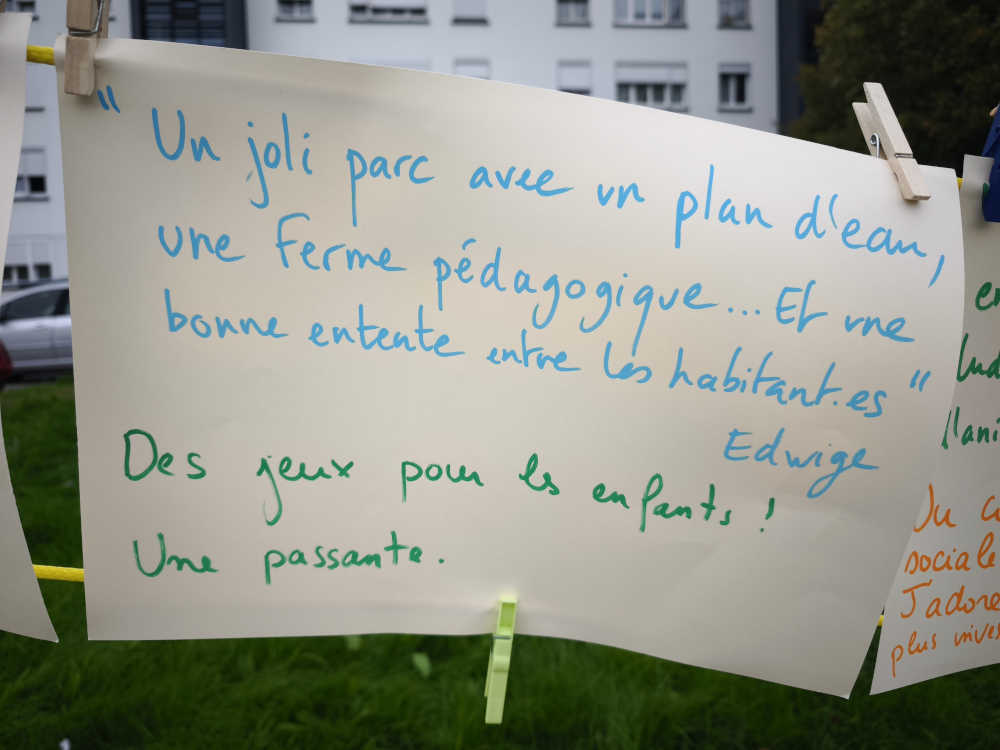 " Un joli parc avec un plan d'eau,
une ferme pédagogique... Et une
bonne entente entre les habitant.es "
Edwige
Des jeux pour les enfants !
Une passante.
sociale
J'adore
plus